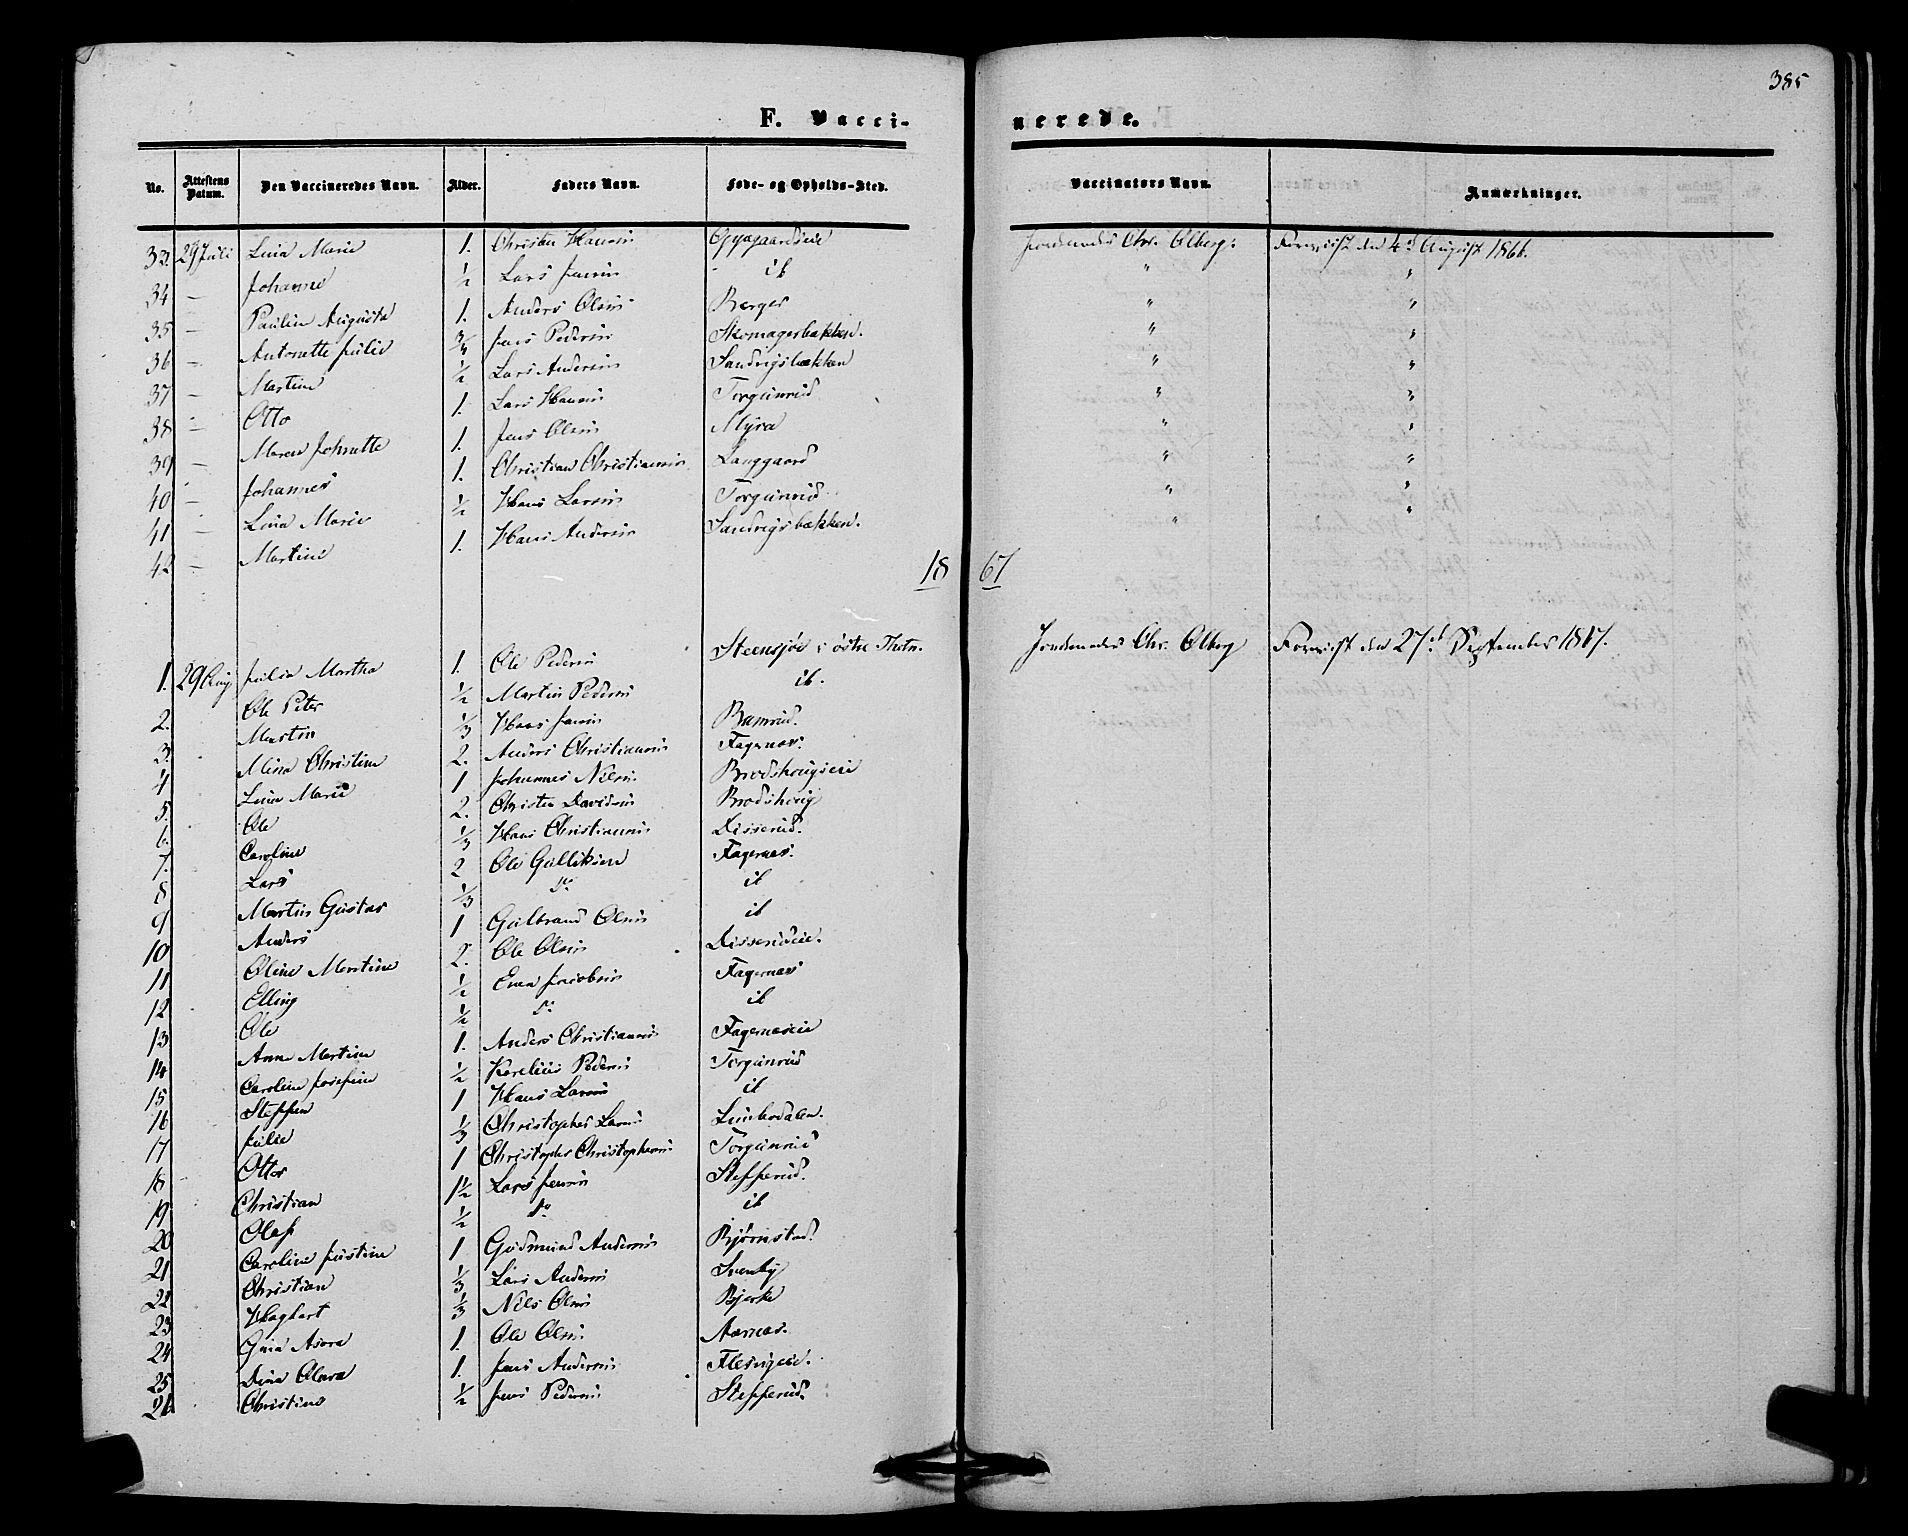 385
F. Vaccinerede.
No. | Attestens Datum. | Den Vaccineredes Navn. | Alder. | Faders Navn. | Føde- og Opholds-Sted. | Vaccinators Navn. | Anmærkninger.
33. | 29 Juli | Lina Marie | 1. | Christen Hansen | | Jordemoder Chr. Ølberg. | Foreviist den 4de August 1866.
34 | — | Johanne | 1/2 | Lars Jensen | ib | " | "
35 | — | Pauline Augusta | 1. | Anders Olsen | Berger | " | "
36 | — | Antonette Julie | 3/4 | Jens Pedersen | Skomagerbakken. | " | "
37 | — | Martine | 1/2 | Lars Andersen | Sandvigsbakken | " | "
38 | — | Otto | 1. | Lars Hansen | Torgunrud | " | "
39 | — | Maren Johnette | 1. | Jens Olsen | Myra | " | "
40 | — | Johannes | 1. | Christian Christiansen | Langgaard | " | "
41 | — | Lina Marie | 1/2 | Hans Larsen | Torgunrud | " | "
42 | — | Martine | 1. | Hans Andersen | Sandvigsbakken. | " | "
1867
1. | 29 Aug. | Julie Martha | 1. | Ole Pedersen | Steensjøe i østre Thoten. | Jordemoder Chr. Ølberg | Foreviist den 27de September 1867.
2. | Ole Peter | 1/2 | Martin Pedersen | ib.
3. | Martin | 1/3 | Hans Jensen | Ramrud.
4 | Mina Christine | 2. | Anders Christiansen | Fagernæs.
5. | Lina Marie | 1 | Johannes Nilsen. | Brodshougeie
6. | Ole | 2. | Christen Davidsen | Brodshoug
7. | Caroline | 1/3 | Hans Christiansen | Disserud.
8 | Lars | 2 | Ole Gulliksen | Fagernæs.
9 | Martin Gustav | 1/3 | Do | ib
10 | Anders | 1 | Gulbrand Olsen | ib
11 | Oline Martine | 2. | Ole Olsen | Disserudeie.
12 | Elling | 1/2 | Even Jacobsen | Fagernæs
13 | Ole | 1/2 | Do | ib
14 | Anne Martine | 1. | Anders Christiansen | Fagernæseie
15 | Caroline Josefine | 1/2 | Karelius Pedersen | Torgunrud
16 | Steffen | 1 | Hans Larsen | ib
17 | Julie | 1/3 | Christopher Larsen |
18 | Otto | 1 | Christopher Christophersen | Torgunrud
19 | Christian | 1 1/2 | Lars Jensen | Stefferud.
20 | Olaf | 1/2 | Do | ib
21 | Caroline Justine | 1 | Gudmund Andersen | Bjørnstad.
22 | Christian | 1/3 | Lars Andersen | Sveenby
23 | Hagbart | 1/3 | Nils Olsen | Bjerke
24 | Gina Asora | 1. | Ole Olsen. | Aarnæs.
25 | Dina Clara | 1. | Jens Andersen | Flesvigeie.
26 | Christine | 1/2 | Jens Pedersen | Stefferud.